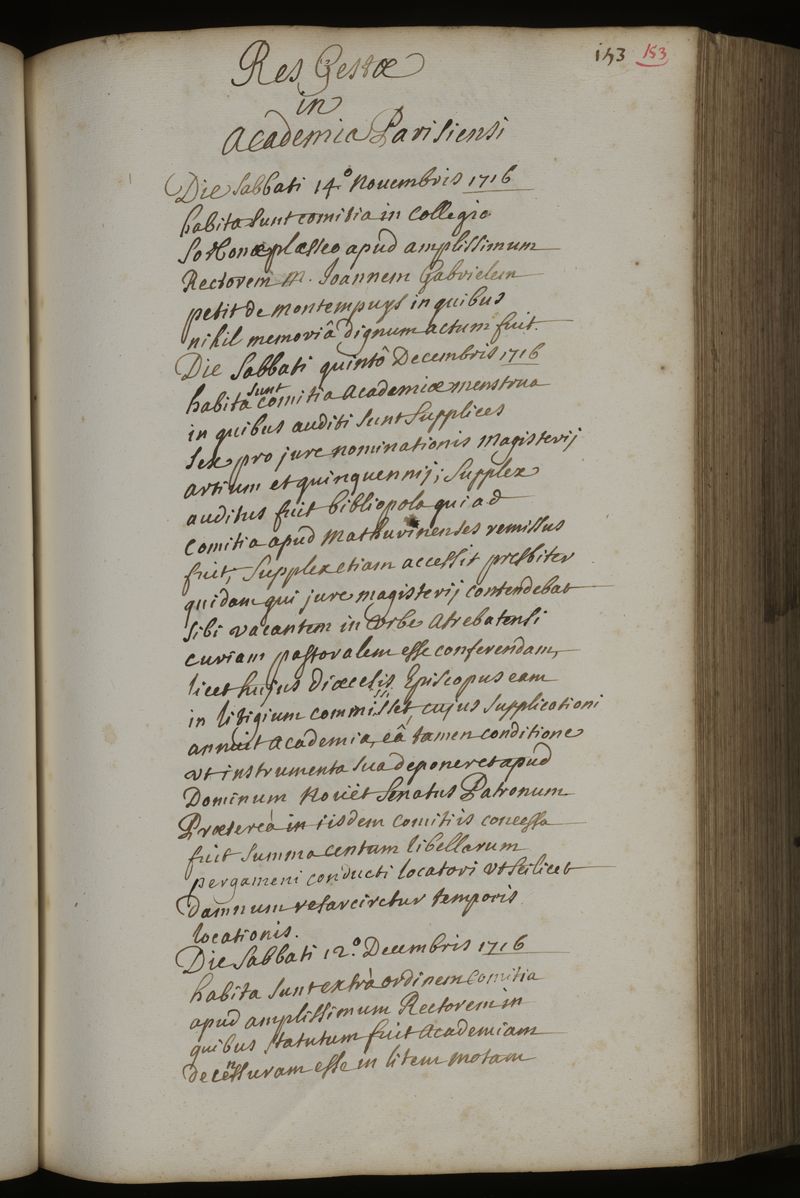 153 153
Res Gestæ
in
Academia Parisiensi
Die Sabbati 14.° Novembris 1716
habita sunt comitia in Collegio
Sorbonæplæsseo apud amplissimum
Rectorem M. Joannem Gabrielem
petit de montempuys in quibus
nihil memoriâ dignum actum fuit.
Die Sabbati quintô Decembris 1716
habita sunt comitia Academiæ menstrua
in quibus auditi sunt supplices
sex pro jure nominationis magisterij
artium et quinquennij; supplex
auditus fuit bibliopola qui ad
Comitia apud Mathurinenses remissus
fuit; supplex etiam accessit presbiter
quidam qui jure magisterij contendebat
sibi vacantem in Urbe Atrebatensi
curiam pastoralem esse conferendam,
licet hujus Diœcesis Episcopus eam
in litigium commisisset, cujus supplicationi
annuit Academia, eâ tamen conditione
ut instrumenta sua deponeret apud
Dominum Nouët Senatus Patronum
Prætereà in iisdem Comitiis concessa
fuit summa centum libellarum
pergameni conducti locatori ut scilicet
damnum resarciretur temporis
locationis.
Die Sabbati 12.° Decembris 1716
habita sunt extrà ordinem Comitia
apud amplissimum Rectorem in
quibus statutum fuit Academiam
decenssuram esse in litem motam